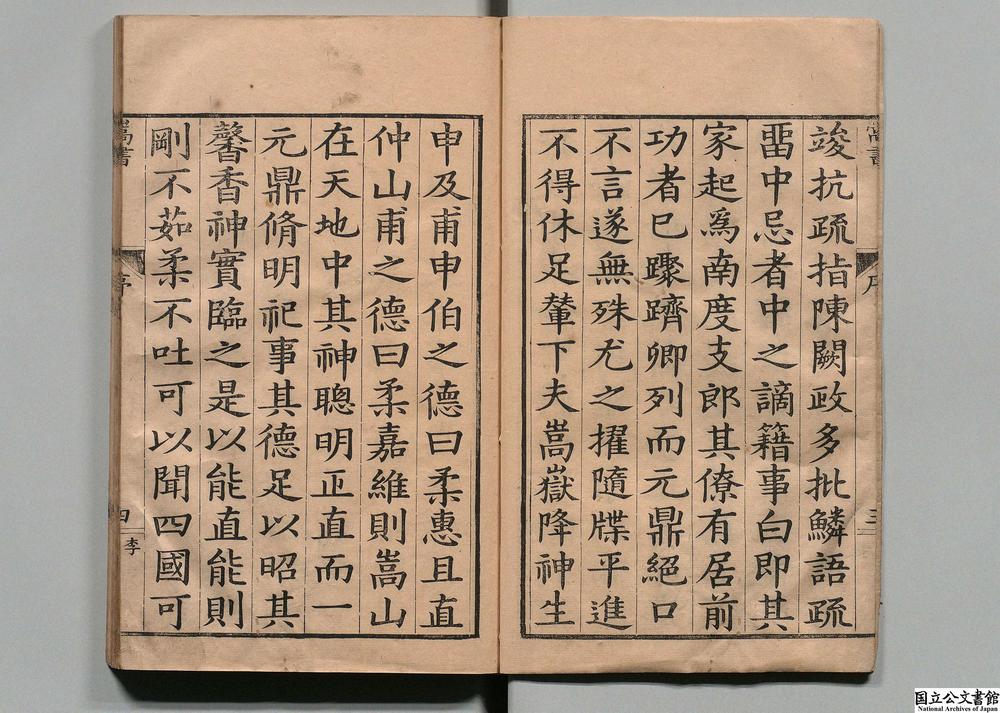 竣抗疏指陳闕政多批鱗語疏
畱中忌者中之謫籍事白即其
家起爲南度支郎其僚有居前
功者已驟躋卿列而元鼎絕口
不言遂無殊尤之擢隨牒平進
不得休足輦下夫嵩嶽降神生
申及甫申伯之德曰柔惠且直
仲山甫之德曰柔嘉維則嵩山
在天地中其神聰明正直而一
元鼎脩明祀事其德足以昭其
馨香神實臨之是以能直能則
剛不茹柔不吐可以聞四國可
嵩書
序
三
嵩書
序
四
李
国立公文書館
National Archives of Japan